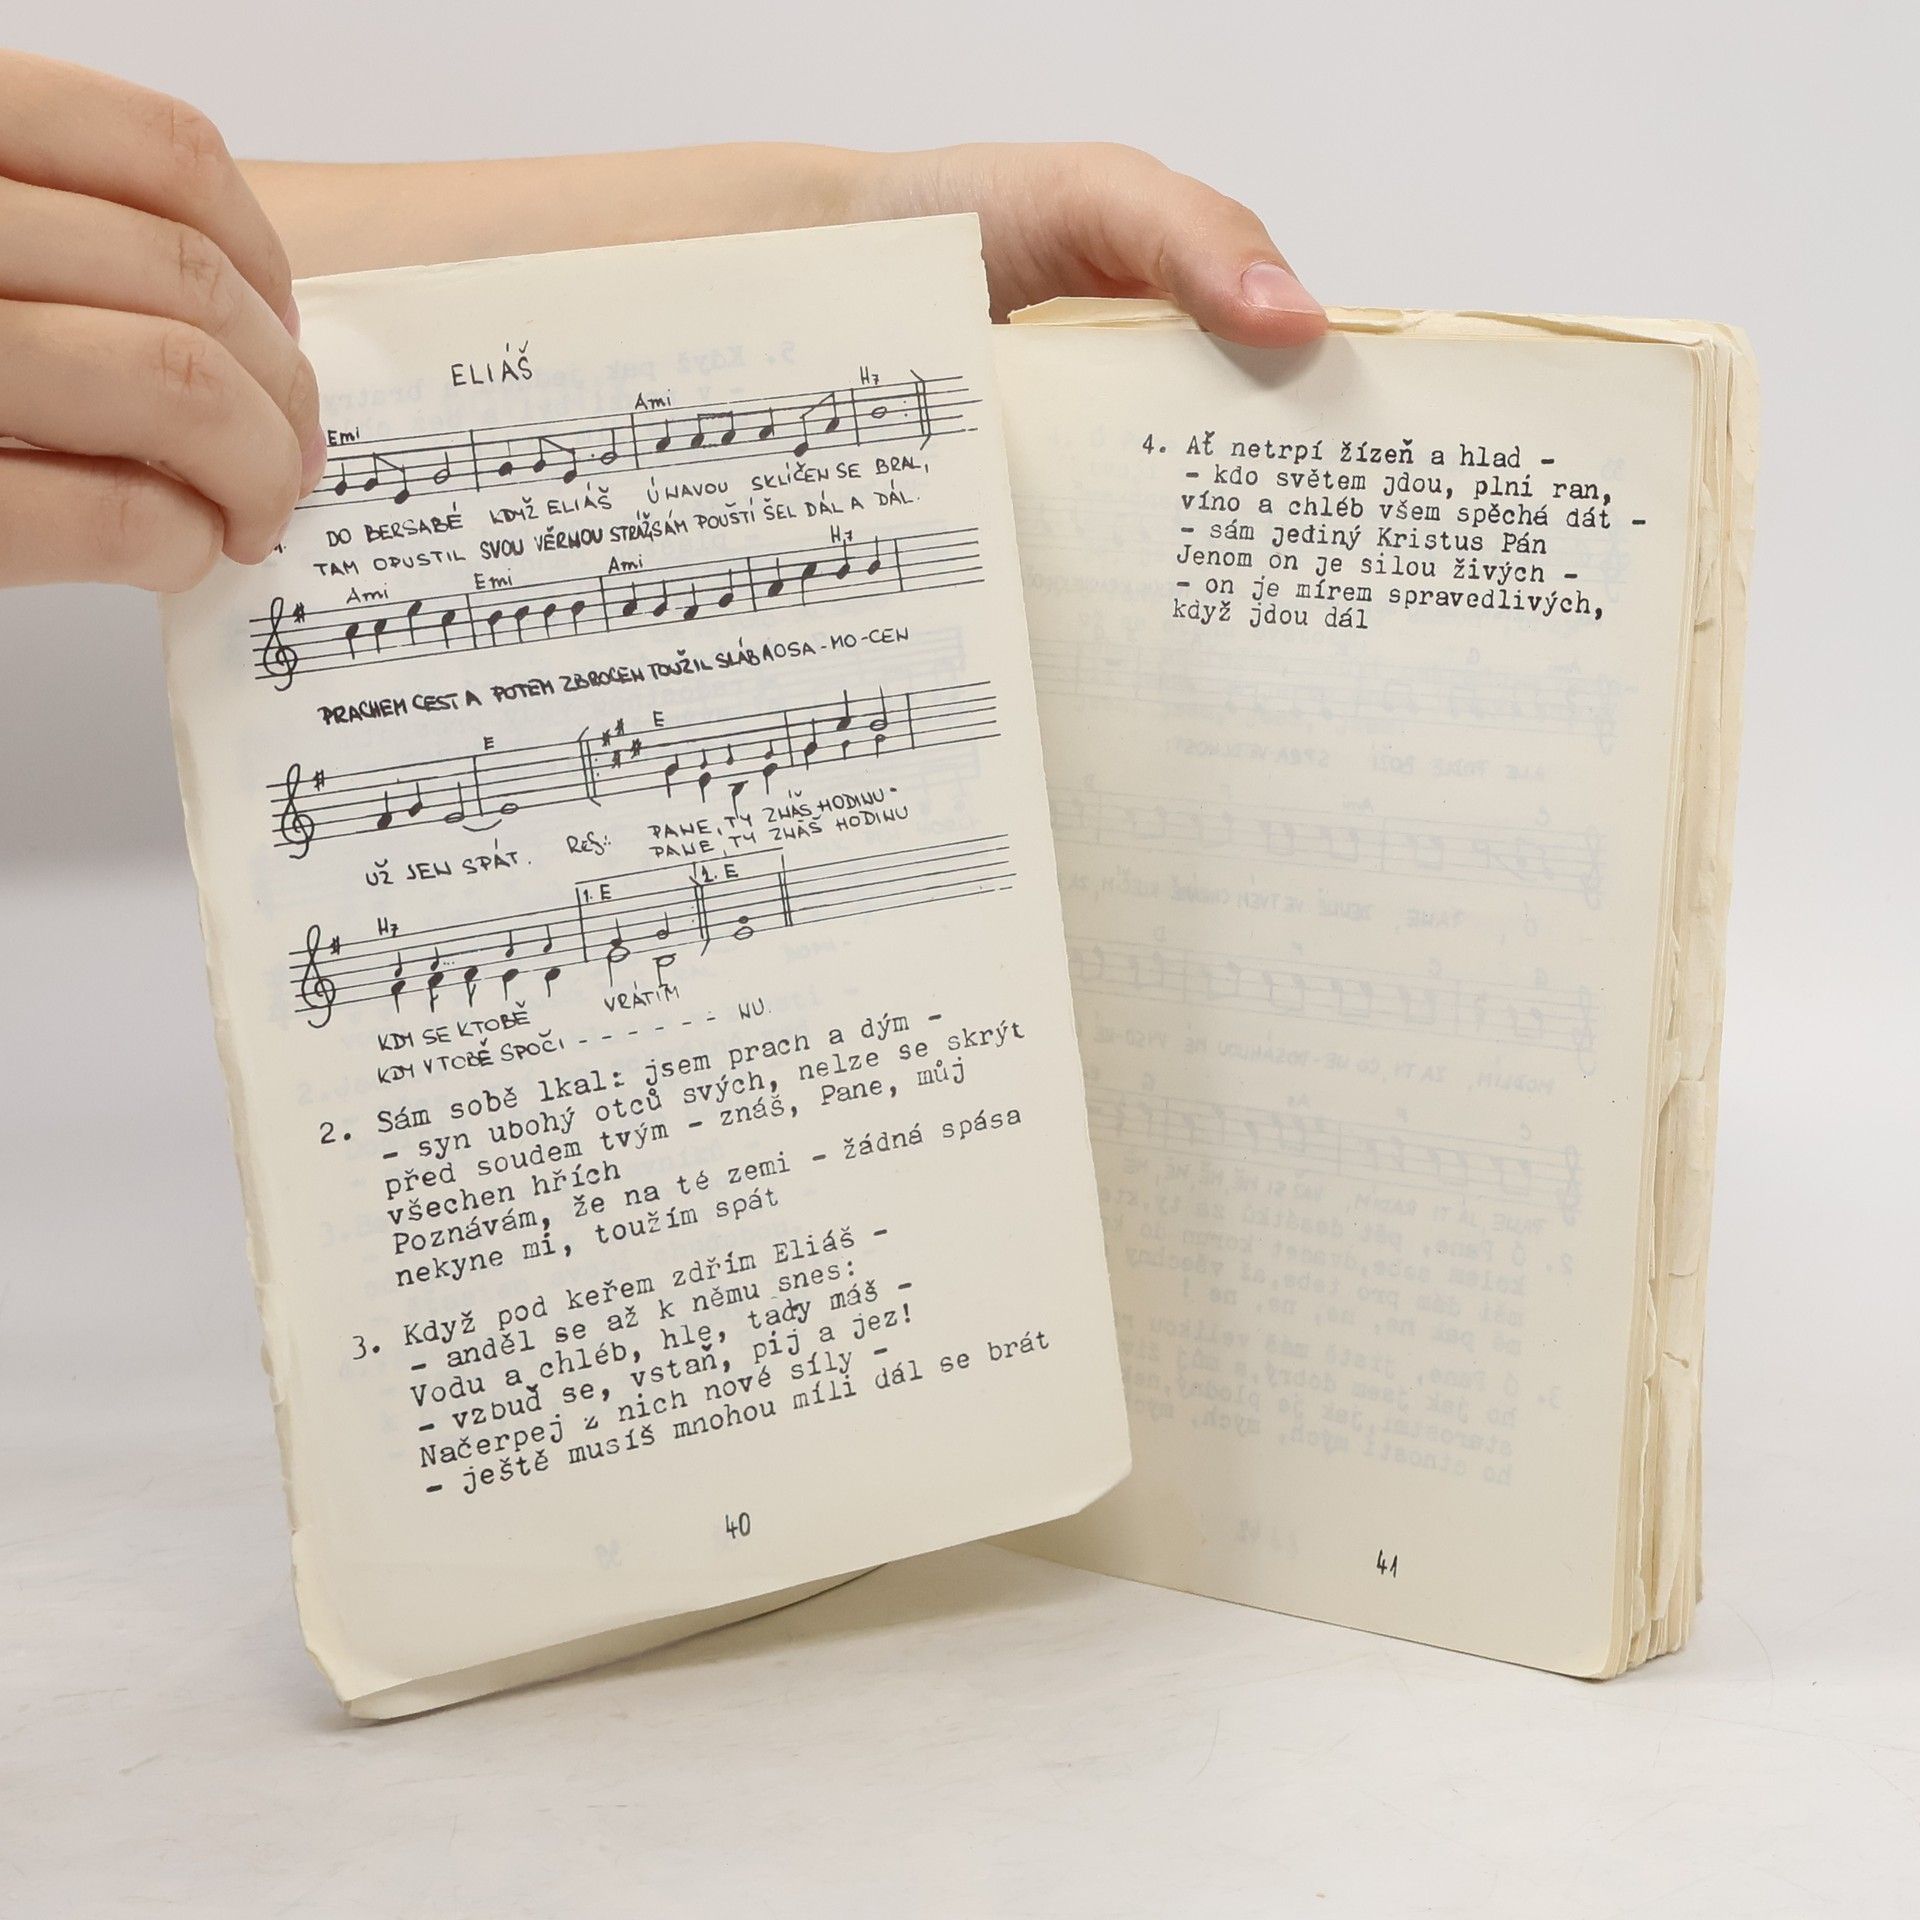 ELIÁŠ
Emi Ami H7
DO BERSABÉ KDYŽ ELIÁŠ ÚNAVOU SKLÍČEN SE BRAL,
TAM OPUSTIL SVOU VĚRNOU STRÁŽ, SÁM POUŠTÍ ŠEL DÁL A DÁL.
Ami Emi Ami H7
PRACHEM CEST A POTEM ZBROCEN TOUŽIL SLÁB A OSA-MO-CEN
E E
UŽ JEN SPÁT. Ref: PANE, TY ZNÁŠ HODINU
PANE, TY ZNÁŠ HODINU
H7 1. E 2. E
KDY SE K TOBĚ VRÁTÍM
KDY V TOBĚ SPOČI - - - - - - NU.
2. Sám sobě lkal: jsem prach a dým -
- syn ubohý otců svých, nelze se skrýt
před soudem tvým - znáš, Pane, můj
všechen hřích
Poznávám, že na té zemi - žádná spása
nekyne mi, toužím spát
3. Když pod keřem zdřím Eliáš -
- anděl se až k němu snes:
Vodu a chléb, hle, tady máš -
- vzbuď se, vstaň, pij a jez!
Načerpej z nich nové síly -
- ještě musíš mnohou míli dál se brát
40
4. Ať netrpí žízeň a hlad -
- kdo světem jdou, plni ran,
víno a chléb všem spěchá dát -
- sám jediný Kristus Pán
Jenom on je silou živých -
- on je mírem spravedlivých,
když jdou dál
41